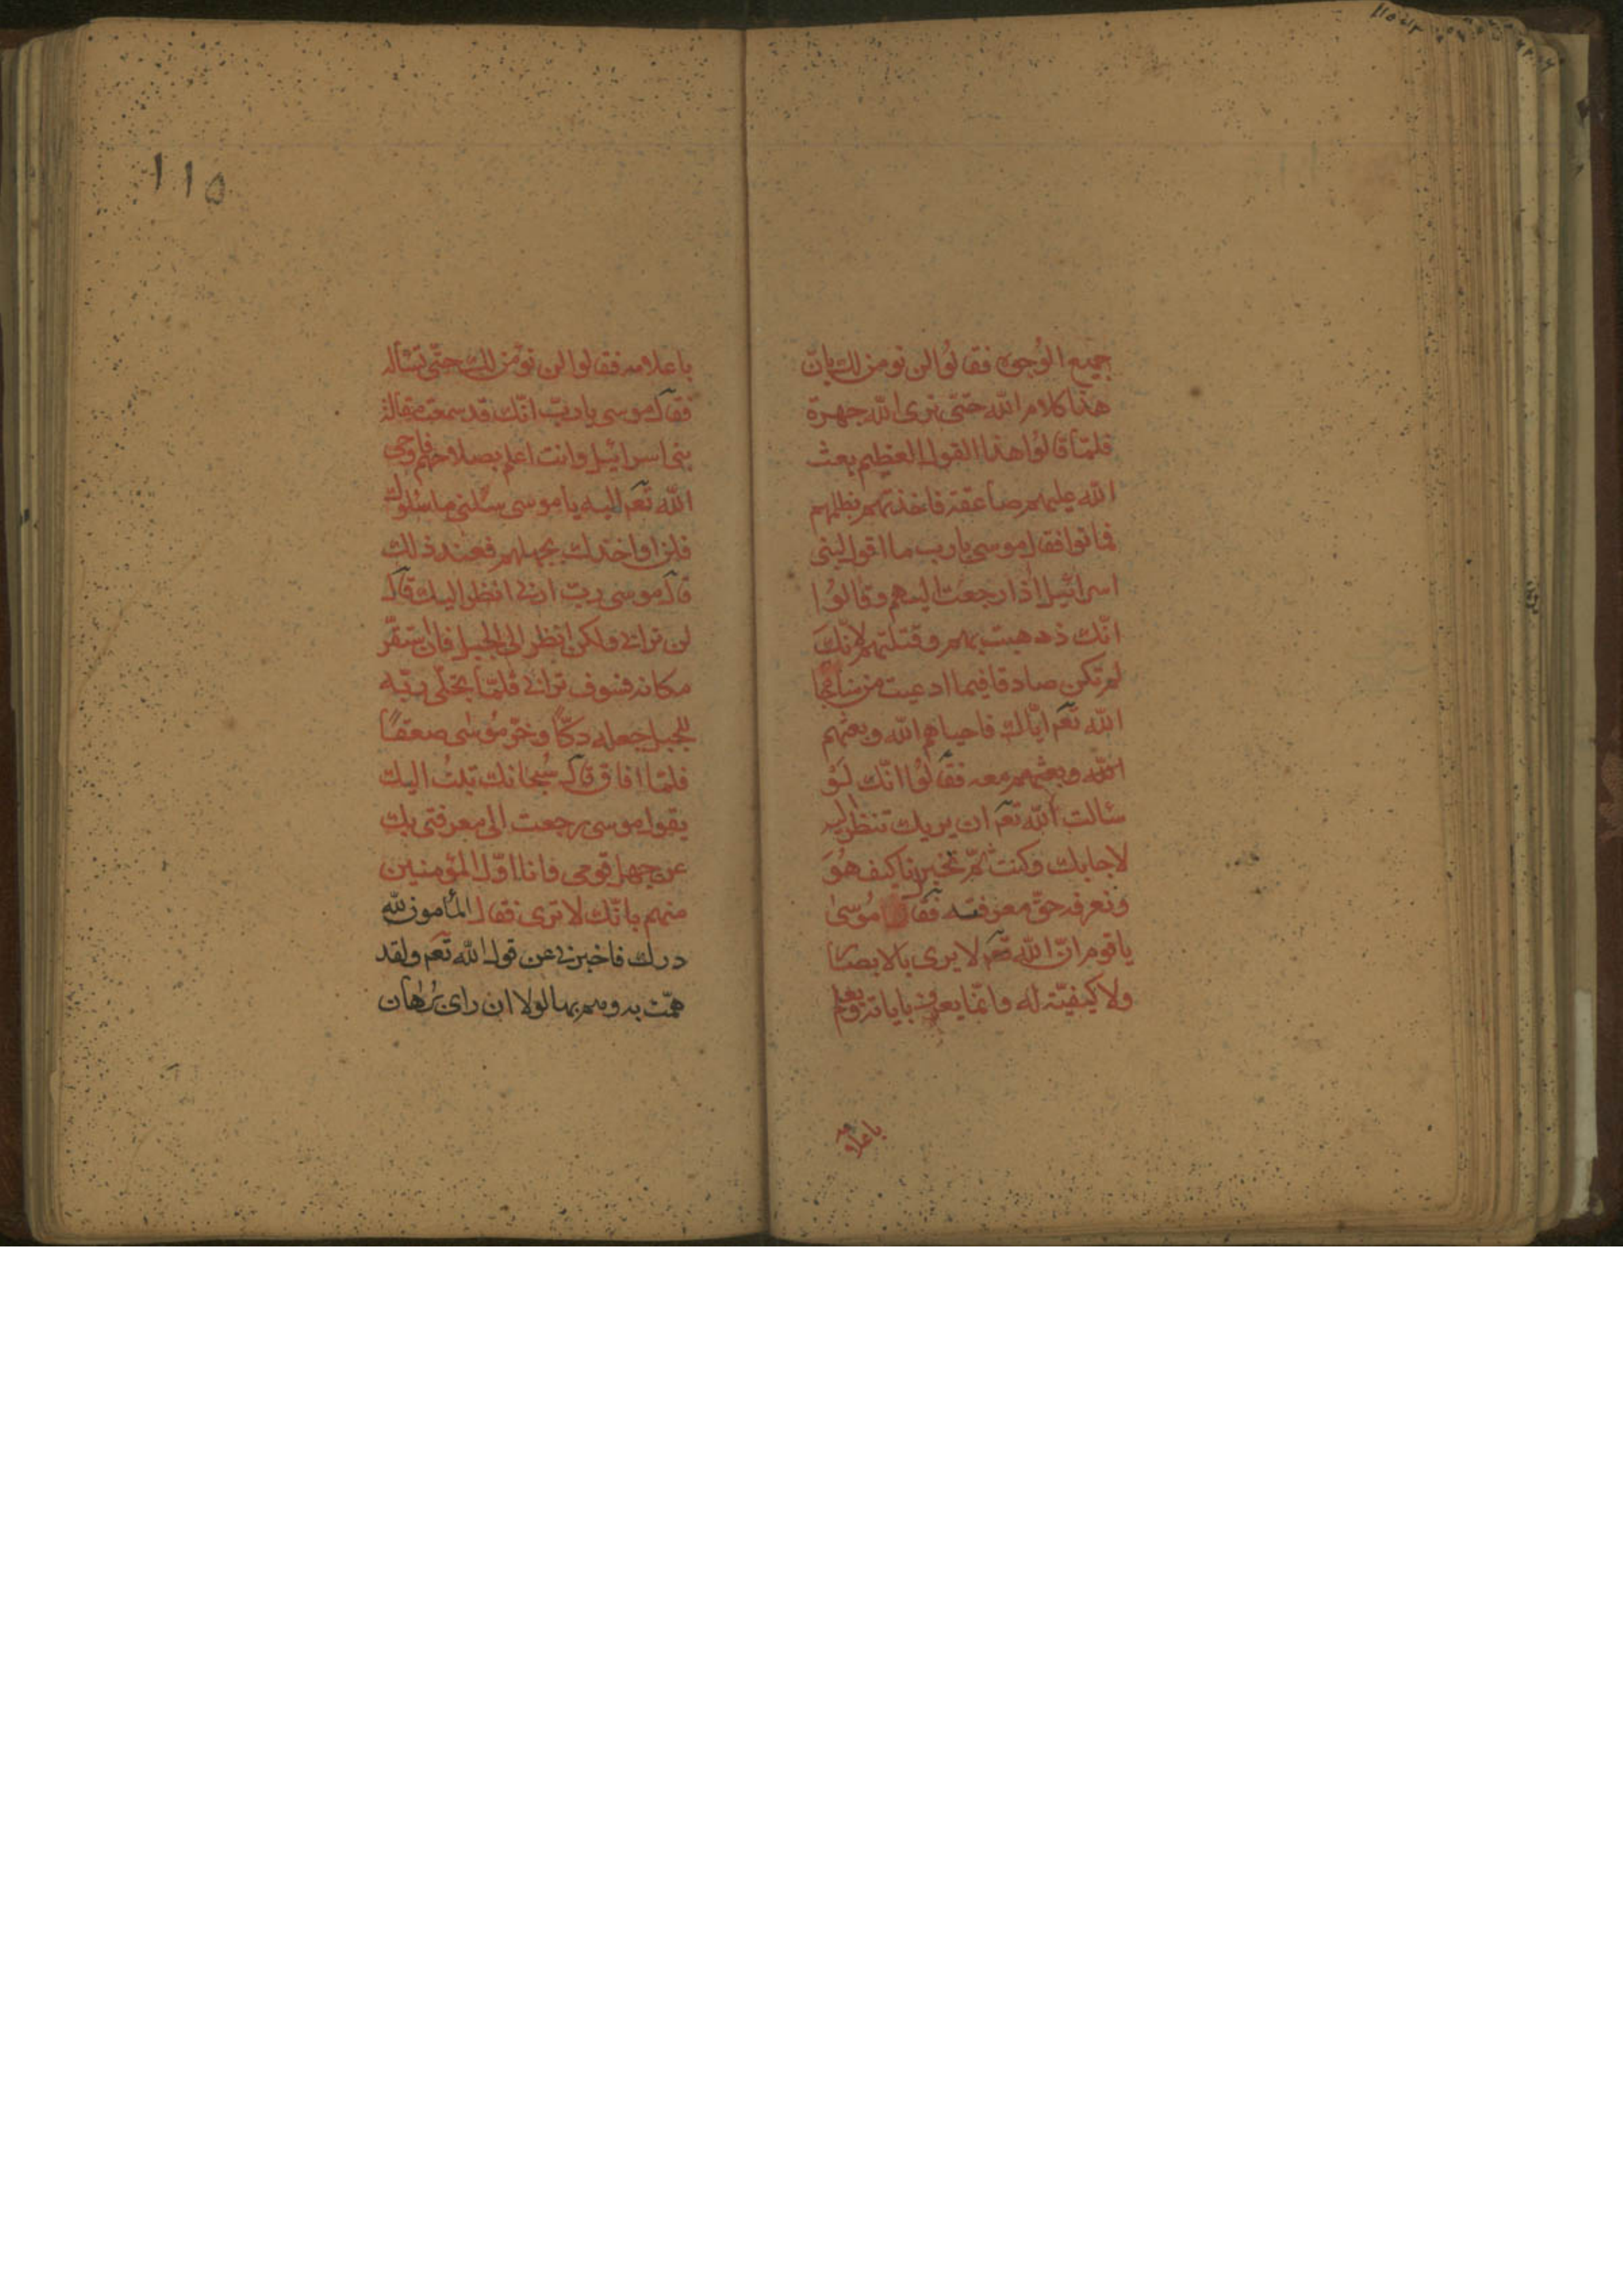 جميع الوجوه فقالوا لن نومن لك بان
هذا كلام الله حتى نرى الله جهرة
فلما قالوا هذا القول العظيم بعث
الله عليهم صاعقة فاخذتهم بظلمهم
فماتوا فقال موسى يا رب ما اقول لبنى
اسرائيل اذا رجعت اليهم وقالوا
انك ذهبت بهم وقتلتهم لانك
لم تكن صادقا فيما ادعيت من
الله تعم اياك فاحياهم الله وبعثهم
الله وبعثهم معه فقالوا انك لو
سالت الله تعم ان يريك تنظر اليه
لاجابك وكنت ثم تخبرنا كيف هو
ونعرفه حق معرفته فقال موسى
يا قوم ان الله تعم لا يرى بالابصار
ولا كيفية له وانما يعرف باياته ويعلم
باعلامه
١١٥
باعلامه فقالوا لن نومن لك حتى تساله
فقال موسى يا رب انك قد سمعت مقالة
بنى اسرائيل وانت اعلم بصلاحهم فاوحى
الله تعم اليه يا موسى سلنى ما سلوك
فلن اواخذك بجهلهم فعند ذلك
قال موسى رب ارنى انظر اليك قال
لن ترانى ولكن انظر الى الجبل فان استقر
مكانه فسوف ترانى فلما تجلى ربه
للجبل جعله دكا وخر موسى صعقا
فلما افاق قال سبحانك تبت اليك
يقول موسى رجعت الى معرفتى بك
عن جهل قومى وانا اول المؤمنين
منهم بانك لا ترى فقال المأمون لله
درك فاخبرنى عن قول الله تعم ولقد
همت به وهم بها لولا ان راى برهان